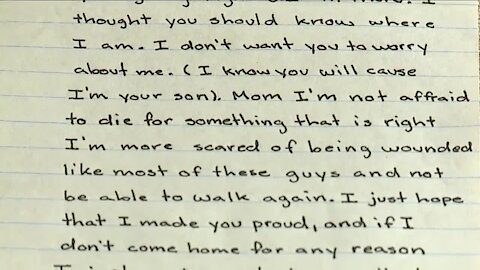 thought you should know where
I am. I don't want you to worry
about me. (I know you will cause
I'm your son). Mom I'm not affraid
to die for something that is right
I'm more scared of being wounded
like most of these guys and not
be able to walk again. I just hope
that I made you proud, and if I
don't come home for any reason